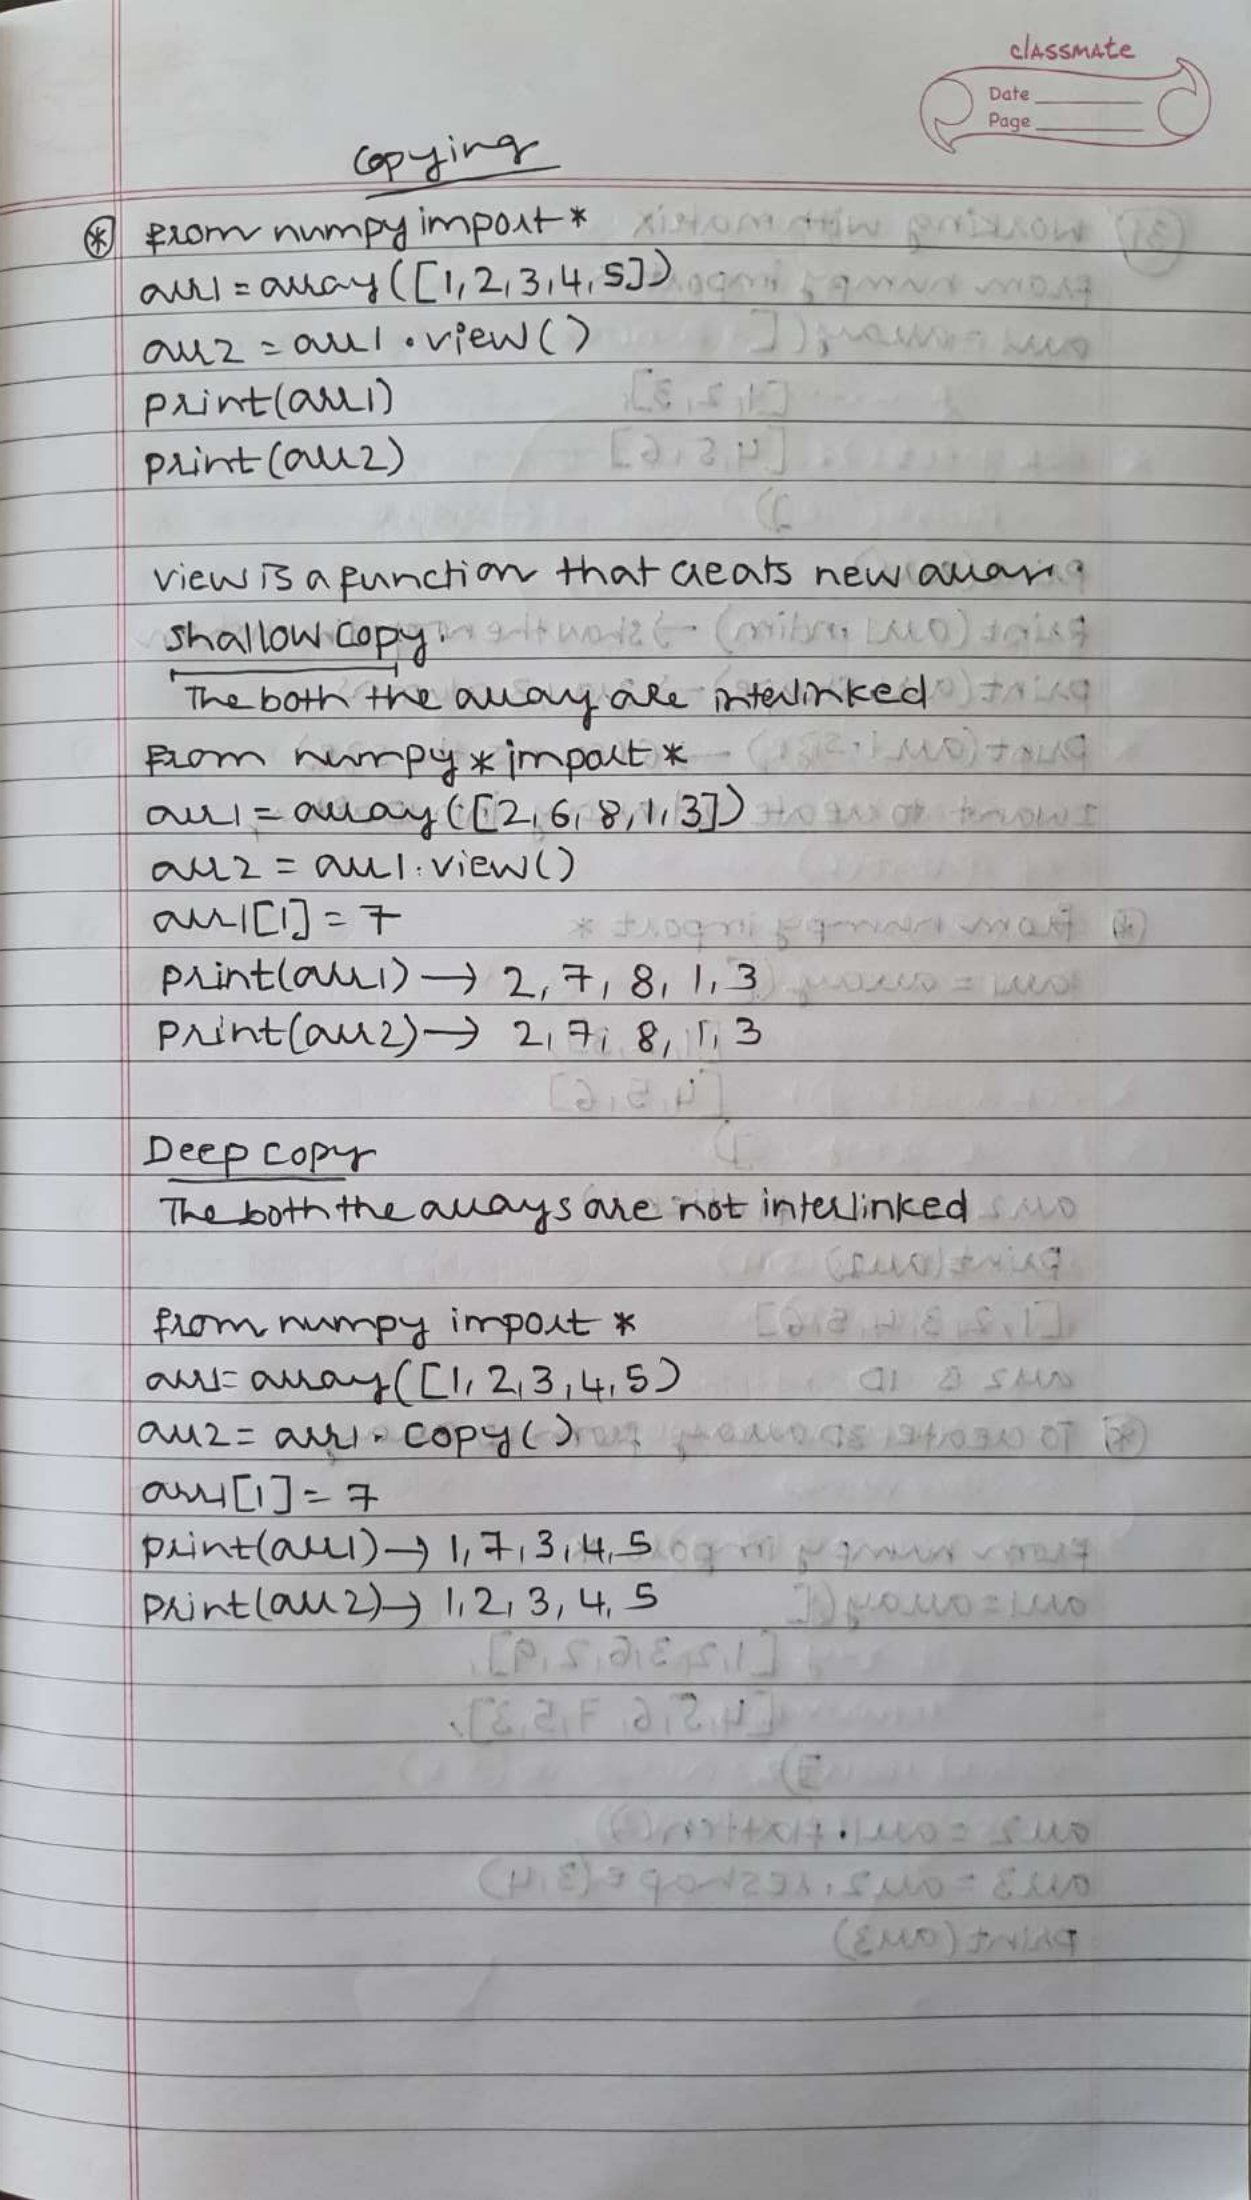 classmate
Date
Page
Copying
* from numpy import *
arr1 = array([1,2,3,4,5])
arr2 = arr1.view()
print(arr1)
print(arr2)
view is a function that creats new array
shallow copy.
The both the array are interlinked
From numpy * import *
arr1 = array([2,6,8,1,3])
arr2 = arr1.view()
arr1[1] = 7
print(arr1) → 2, 7, 8, 1, 3
print(arr2) → 2, 7, 8, 1, 3
Deep copy
The both the arrays are not interlinked
from numpy import *
arr1= array([1, 2, 3, 4, 5)
arr2 = arr1.copy()
arr1[1] = 7
print(arr1) → 1, 7, 3, 4, 5
print(arr2) → 1, 2, 3, 4, 5